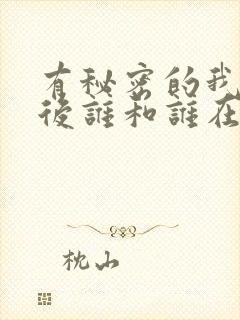 有秘密的我
后誰和誰在
枕山